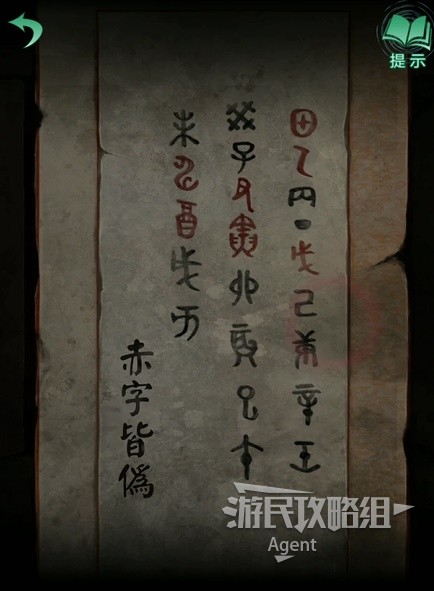 提示
甲乙丙丁戊己庚辛壬
癸子丑寅卯辰巳午
未申酉戌亥
赤字皆偽
游民攻略组
Agent